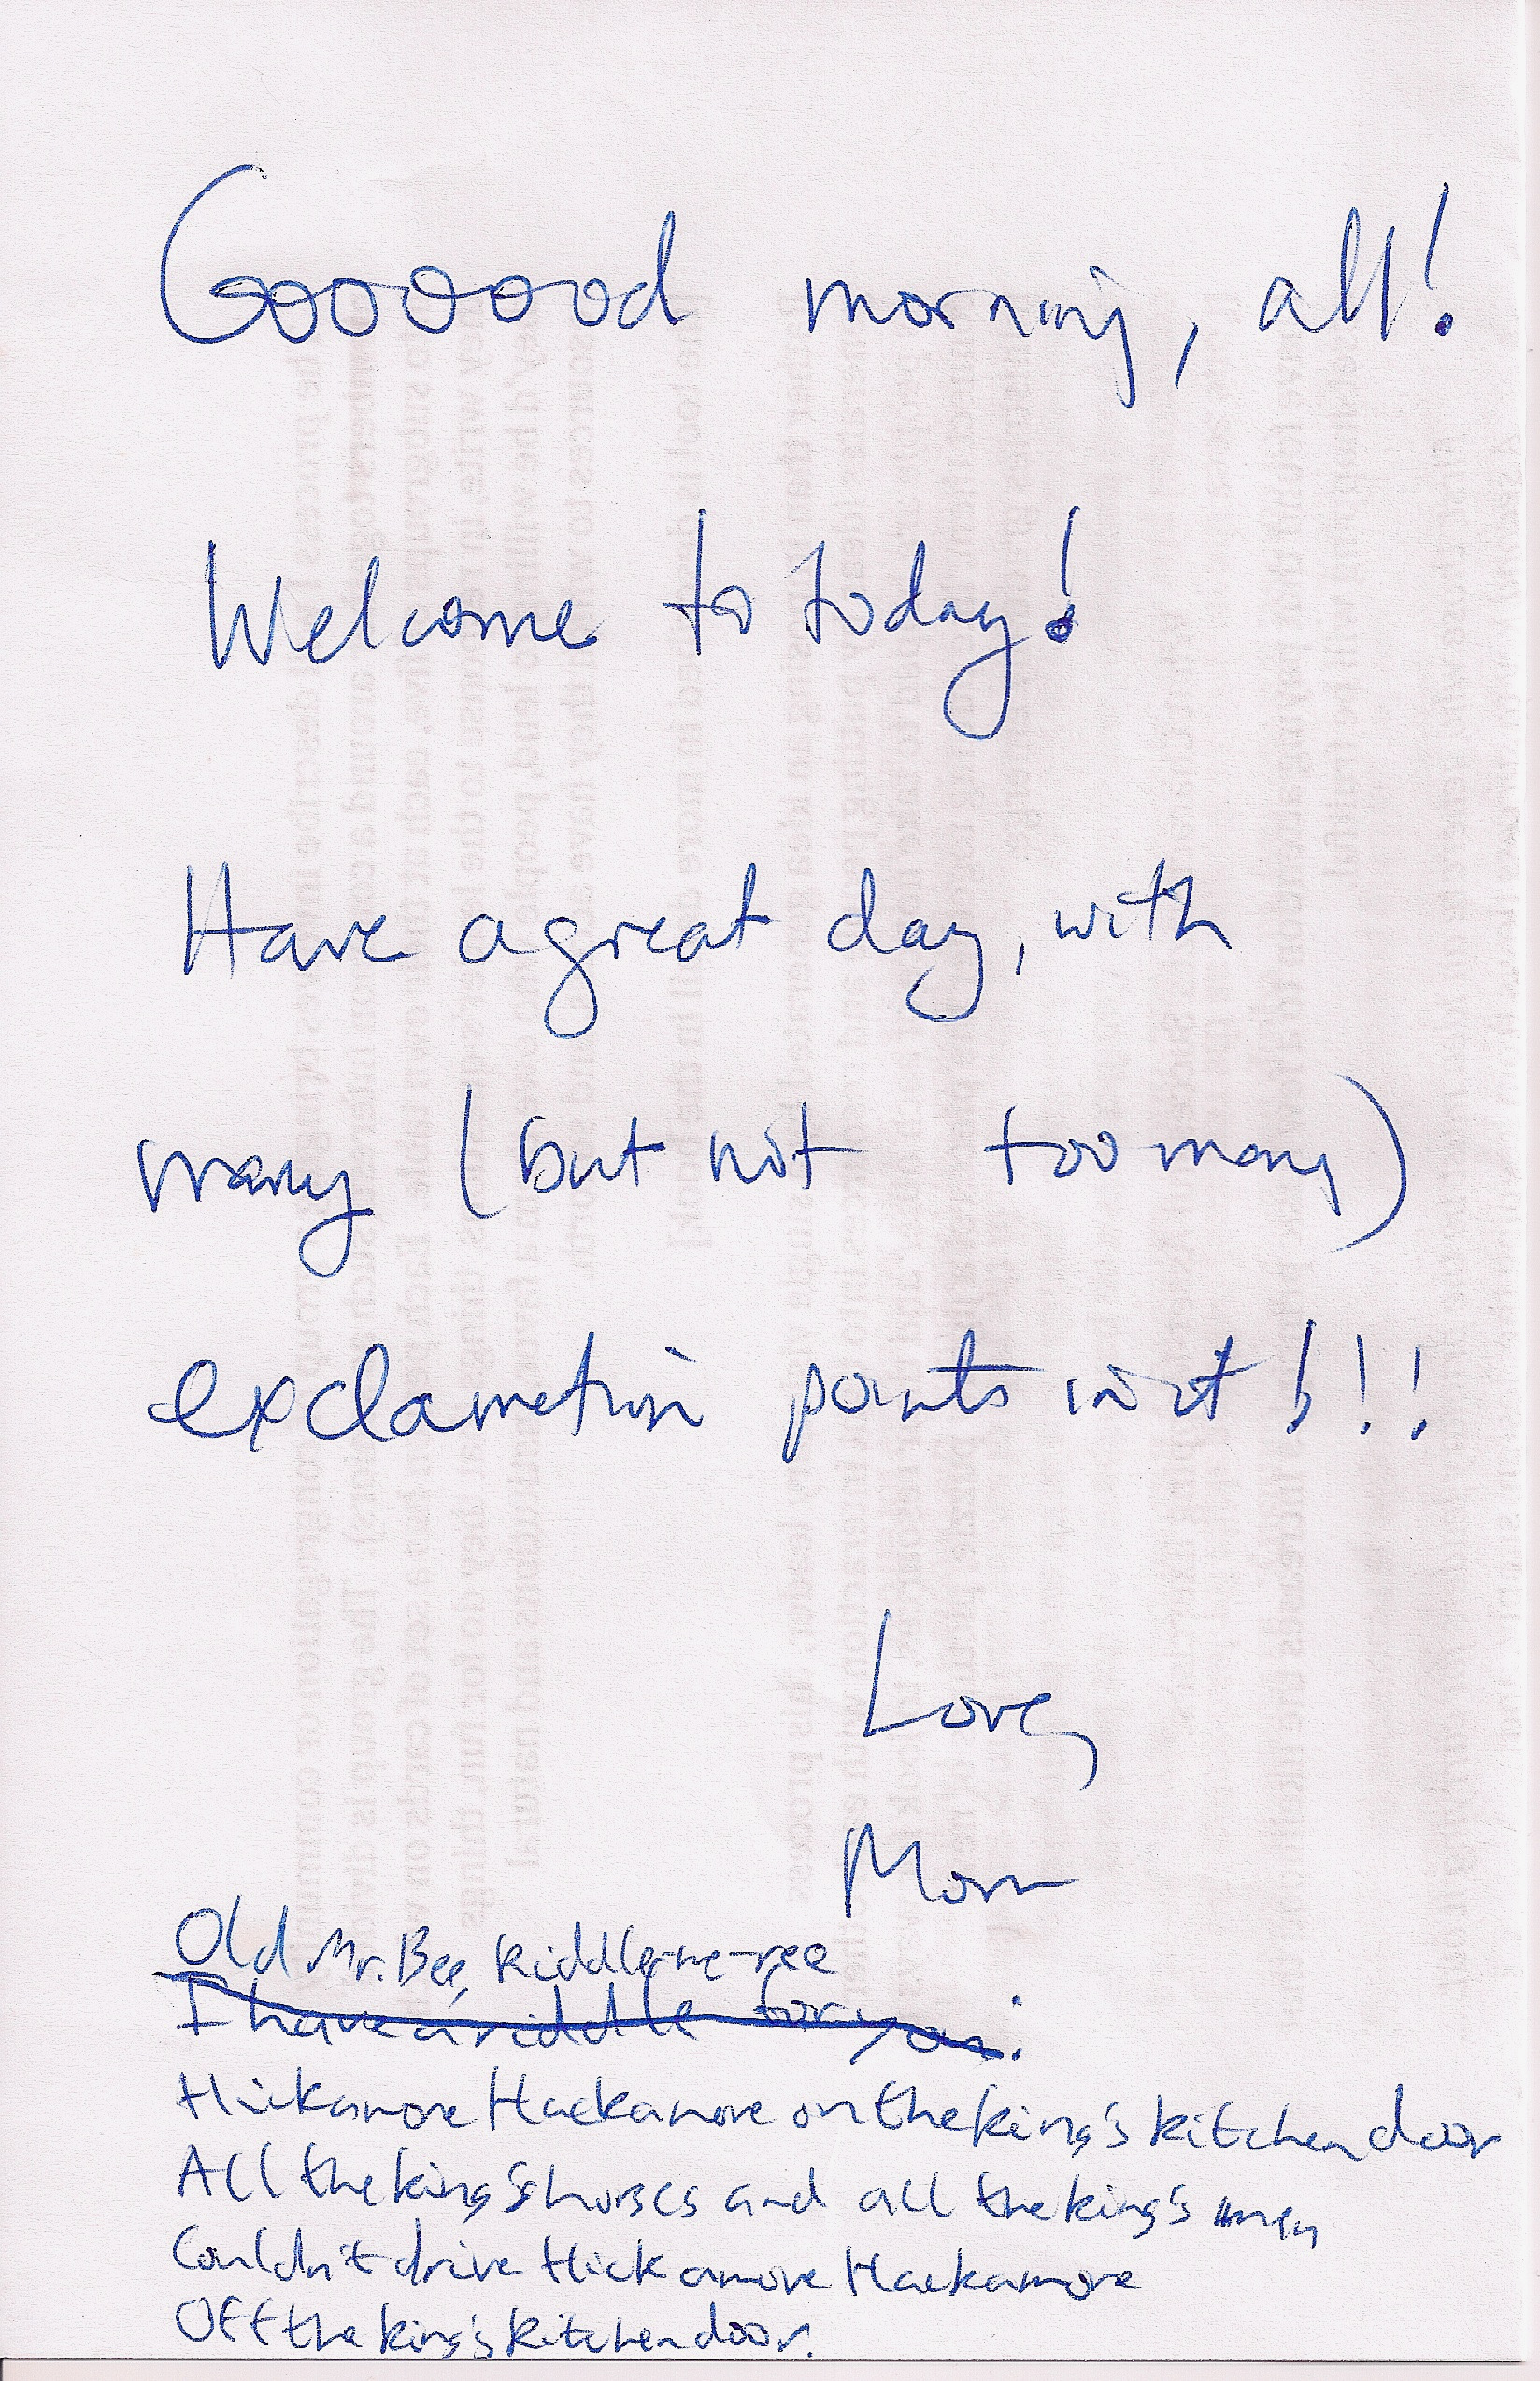 Goooood morning, all!
Welcome to today!
Have a great day, with
many (but not too many)
exclamation points in it!!!
Love,
Mom
Old Mr. Bee, Riddle-me-ree
I have a riddle for you:
Hickamore Hackamore on the king's kitchen door
All the king's horses and all the king's men
Couldn't drive Hickamore Hackamore
Off the king's kitchen door.